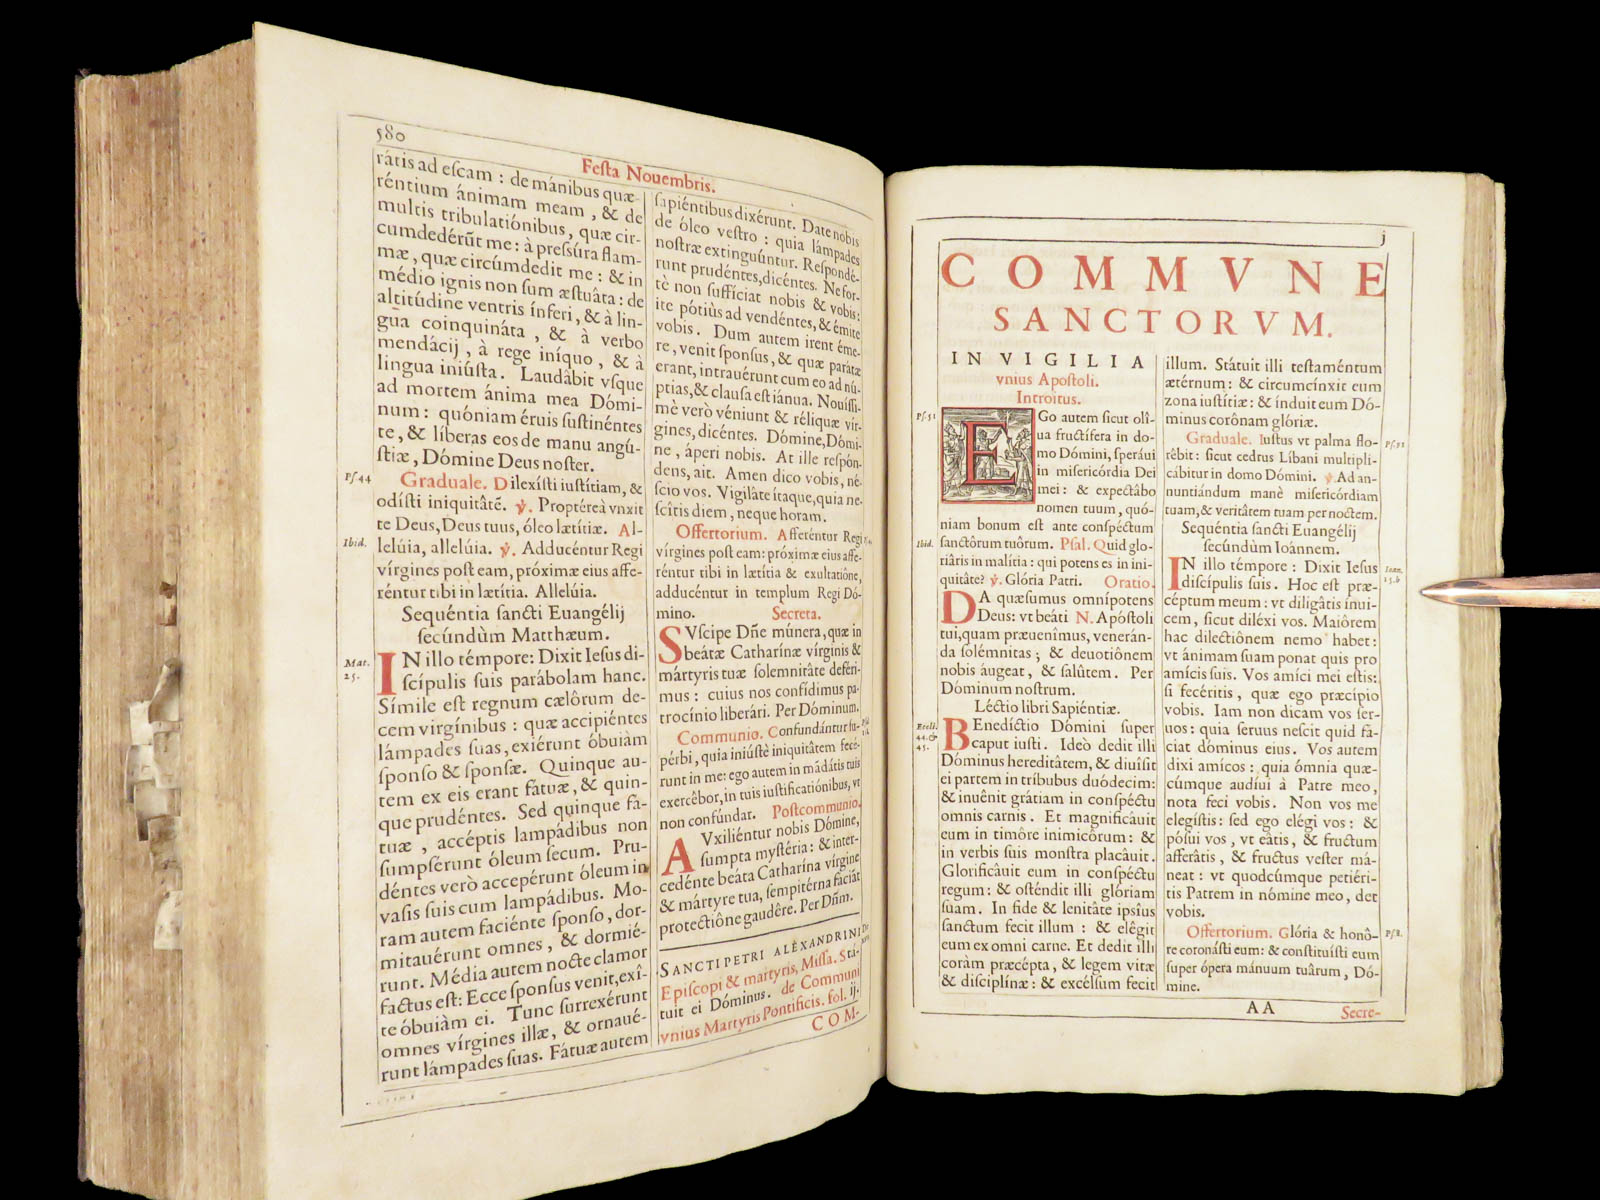 580
Feſta Nouembris.
rátis ad eſcam : de mánibus quæ-
réntium ánimam meam , & de
multis tribulatiónibus , quæ cir-
cumdedérūt me : à preſsúra flam-
mæ , quæ circúmdedit me : & in
médio ignis non ſum æſtuâta : de
altitúdine ventris ínferi, & à lin-
gua coinquináta , & à verbo
mendácij , à rege iníquo , & à
lingua iniúſta. Laudâbit vſque
ad mortem ánima mea Dómi-
num : quóniam éruis ſuſtinéntes
te , & líberas eos de manu angú-
ſtiæ , Dómine Deus noſter.
Pſ 44
Graduale. Dilexíſti iuſtítiam, &
odíſti iniquitâtē. ℣. Proptéreà vnxit
te Deus, Deus tuus, óleo lætítiæ. Al-
Ibid.
lelúia, allelúia. ℣. Adducéntur Regi
vírgines poſt eam, próximæ eius affe-
réntur tibi in lætítia. Allelúia.
Sequéntia ſancti Euangélij
ſecúndùm Matthæum.
Mat.
25.
IN illo témpore: Dixit Ieſus di-
ſcípulis ſuis parábolam hanc.
Símile eſt regnum cælôrum de-
cem virgínibus : quæ accipiéntes
lámpades ſuas, exiérunt óbuiàm
ſponſo & ſponſæ. Quinque au-
tem ex eis erant fátuæ, & quin-
que prudéntes. Sed quinque fá-
tuæ , accéptis lampádibus non
ſumpſérunt óleum ſecum. Pru-
déntes verò accepérunt óleum in
vaſis ſuis cum lampádibus. Mo-
ram autem faciénte ſponſo , dor-
mitauérunt omnes , & dormié-
runt. Média autem nocte clamor
factus eſt: Ecce ſponſus venit, exî-
te óbuiàm ei. Tunc ſurrexérunt
omnes vírgines illæ, & ornaué-
runt lámpades ſuas. Fátuæ autem
ſapiéntibus dixérunt. Date nobis
de óleo veſtro : quia lámpades
noſtræ extinguúntur. Reſpondé-
runt prudéntes, dicéntes. Ne for-
tè non ſuffíciat nobis & vobis:
ite pótiùs ad vendéntes, & émite
vobis. Dum autem irent éme-
re , venit ſponſus, & quæ parátæ
erant, intrauérunt cum eo ad nú-
ptias, & clauſa eſt iánua. Nouíſſi-
mè verò véniunt & réliquæ vír-
gines, dicéntes. Dómine, Dómi-
ne , áperi nobis. At ille reſpón-
dens, ait. Amen dico vobis, né-
ſcio vos. Vigiláte ítaque, quia ne-
ſcîtis diem , neque horam.
Offertorium. Afferéntur Regi
vírgines poſt eam: próximæ eius affe-
réntur tibi in lætítia & exultatiône,
adducéntur in templum Regi Dó-
mino. Secreta.
SVſcipe Dñe múnera, quæ in
beátæ Catharínæ vírginis &
mártyris tuæ ſolemnitâte deféri-
mus : cuius nos confídimus pa-
trocínio liberári. Per Dóminum.
Communio. Confundántur ſu-
pérbi , quia iniúſtè iniquitâtem fecé-
runt in me: ego autem in mādátis tuis
exercêbor, in tuis iuſtificatiónibus, vt
non confúndar. Poſtcommunio.
AVxiliéntur nobis Dómine,
ſumpta myſtéria : & inter-
cedénte beáta Catharína vírgine
& mártyre tua, ſempitérna fáciāt
protectiône gaudêre. Per Dñm.
SANCTI PETRI ALEXANDRINI
Epiſcopi & martyris, Miſſa. Stá-
tuit ei Dóminus. de Communi
vnius Martyris Pontificis. fol. ij.
COM-
j
COMMVNE
SANCTORVM.
IN VIGILIA
vnius Apoſtoli.
Introitus.
Pſ. 51
EGo autem ſicut olí-
ua fructífera in do-
mo Dómini, ſperáui
in miſericórdia Dei
mei : & expectâbo
nomen tuum , quó-
niam bonum eſt ante conſpéctum
Ibid.
ſanctórum tuôrum. Pſal. Quid glo-
riâris in malítia : qui potens es in ini-
quitáte? ℣. Glória Patri. Oratio.
DA quæſumus omnípotens
Deus: vt beáti N. Apóſtoli
tui, quam præuenîmus, venerán-
da ſolémnitas ; & deuotiônem
nobis áugeat , & ſalûtem. Per
Dóminum noſtrum.
Léctio libri Sapiéntiæ.
Eccli.
44. &
45.
BEnedíctio Dómini ſuper
caput iuſti. Ideò dedit illi
Dóminus hereditâtem, & diuíſit
ei partem in tríbubus duódecim:
& inuênit grátiam in conſpéctu
omnis carnis. Et magnificâuit
eum in timôre inimicôrum : &
in verbis ſuis monſtra placâuit.
Glorificâuit eum in conſpéctu
regum : & oſténdit illi glóriam
ſuam. In fide & lenitâte ipsîus
ſanctum fecit illum : & elêgit
eum ex omni carne. Et dedit illi
coràm præcépta, & legem vitæ
& diſciplínæ : & excélſum fecit
illum. Státuit illi teſtaméntum
ætérnum : & circumcínxit eum
zona iuſtítiæ : & índuit eum Dó-
minus corônam glóriæ.
Graduale. Iuſtus vt palma flo- Pſ. 91
rêbit : ſicut cedrus Líbani multipli-
cábitur in domo Dómini. ℣. Ad an-
nuntiándum manè miſericórdiam
tuam, & veritâtem tuam per noctem.
Sequéntia ſancti Euangélij
ſecúndùm Ioánnem.
IN illo témpore : Dixit Ieſus
Ioan.
15. b
diſcípulis ſuis. Hoc eſt præ-
céptum meum : vt diligâtis ínui-
cem , ſicut diléxi vos. Maiôrem
hac dilectiônem nemo habet :
vt ánimam ſuam ponat quis pro
amícis ſuis. Vos amíci mei eſtis:
ſi fecéritis , quæ ego præcípio
vobis. Iam non dicam vos ſer-
uos : quia ſeruus neſcit quid fá-
ciat dóminus eius. Vos autem
dixi amícos : quia ómnia quæ-
cúmque audíui à Patre meo ,
nota feci vobis. Non vos me
elegíſtis : ſed ego elégi vos : &
póſui vos , vt eâtis , & fructum
afferâtis , & fructus veſter má-
neat : vt quodcúmque petiéri-
tis Patrem in nómine meo , det
vobis.
Offertorium. Glória & honô- Pſ 8.
re coronáſti eum: & conſtituíſti eum
ſuper ópera mánuum tuârum , Dó-
mine.
AA
Secre-